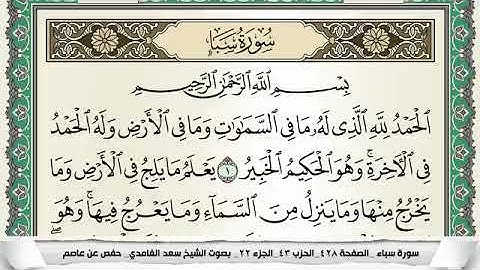 سُورَةُ سَبَإٍ
بِسْمِ اللَّهِ الرَّحْمَٰنِ الرَّحِيمِ
الْحَمْدُ لِلَّهِ الَّذِي لَهُ مَا فِي السَّمَاوَاتِ وَمَا فِي الْأَرْضِ وَلَهُ الْحَمْدُ
فِي الْآخِرَةِ ۚ وَهُوَ الْحَكِيمُ الْخَبِيرُ ١ يَعْلَمُ مَا يَلِجُ فِي الْأَرْضِ وَمَا
يَخْرُجُ مِنْهَا وَمَا يَنزِلُ مِنَ السَّمَاءِ وَمَا يَعْرُجُ فِيهَا ۚ وَهُوَ
سورة سباء _ الصفحة ٤٢٨_ الحزب ٤٣_ الجزء ٢٢_ بصوت الشيخ سعد الغامدي_ حفص عن عاصم